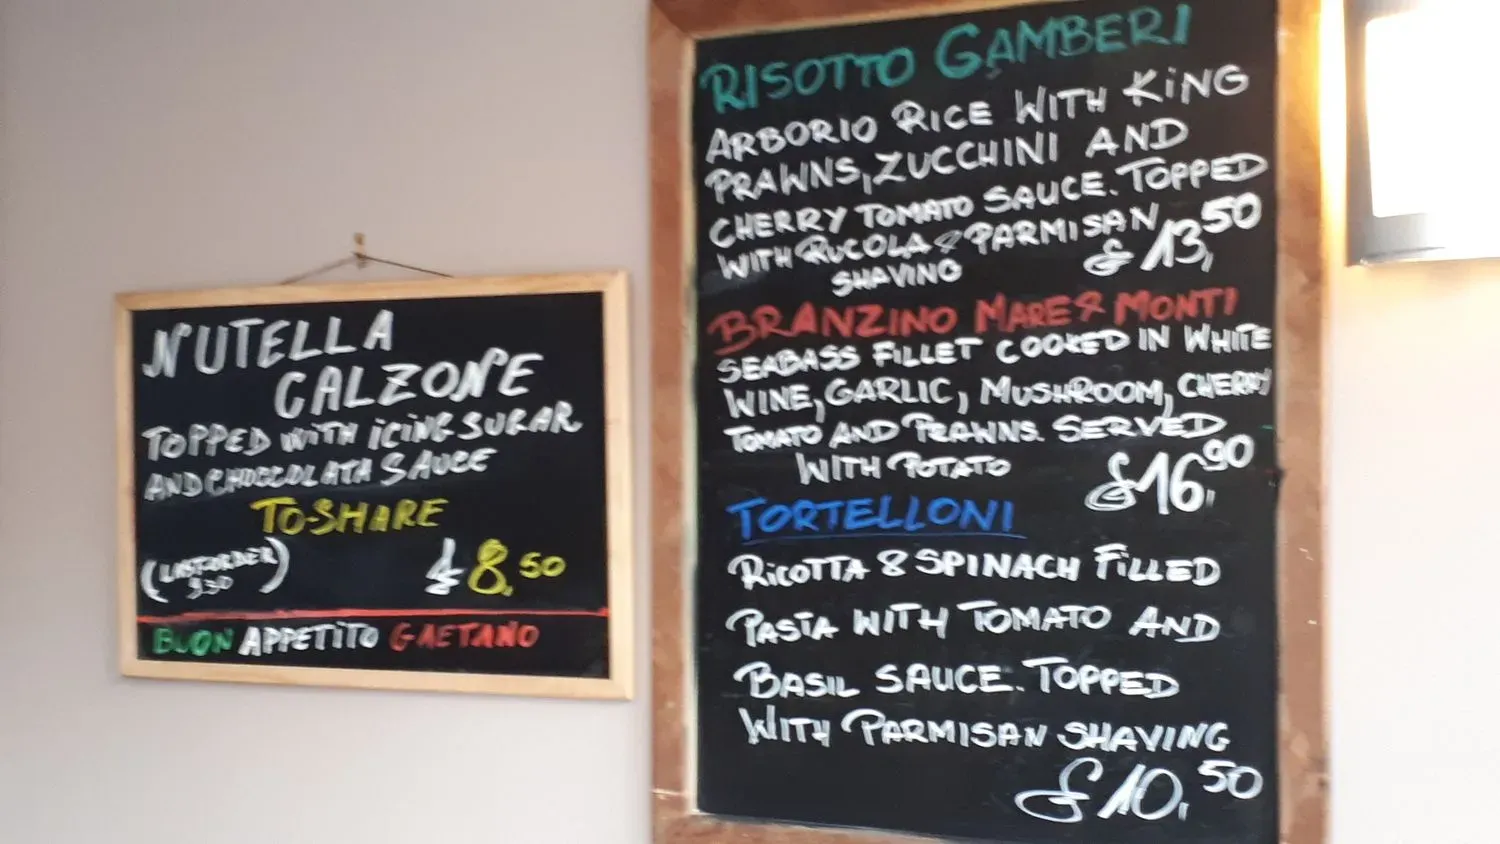 NUTELLA
CALZONE
TOPPED WITH ICING SUGAR
AND CHOCCOLATA SAUCE
TO SHARE
(LAST ORDER
9.30)
£8,50
BUON APPETITO GAETANO
RISOTTO GAMBERI
ARBORIO RICE WITH KING
PRAWNS, ZUCCHINI AND
CHERRY TOMATO SAUCE. TOPPED
WITH RUCOLA & PARMISAN
SHAVING
£13,50
BRANZINO MARE & MONTI
SEABASS FILLET COOKED IN WHITE
WINE, GARLIC, MUSHROOM, CHERRY
TOMATO AND PRAWNS. SERVED
WITH POTATO
£16,90
TORTELLONI
RICOTTA & SPINACH FILLED
PASTA WITH TOMATO AND
BASIL SAUCE. TOPPED
WITH PARMISAN SHAVING
£10,50